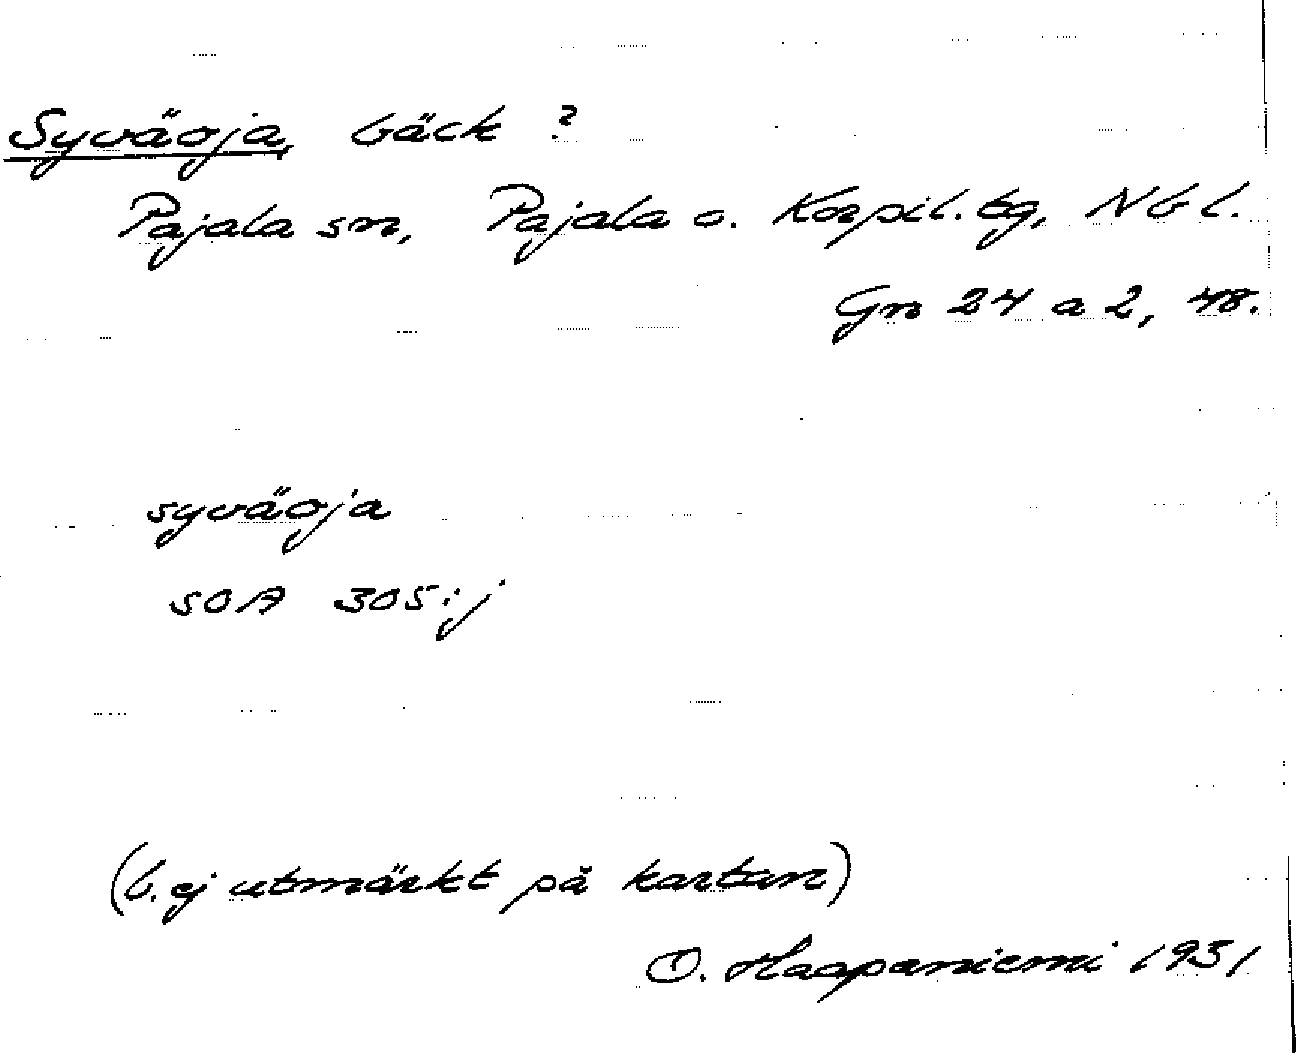 Syväoja, bäck ?
Pajala sn, Pajala o. Korpil. tg, Nb l.
Gn 24 a 2, 48.
syväoja
SOA 305:j
(b. ej utmärkt på kartan)
O. Haapaniemi 1931